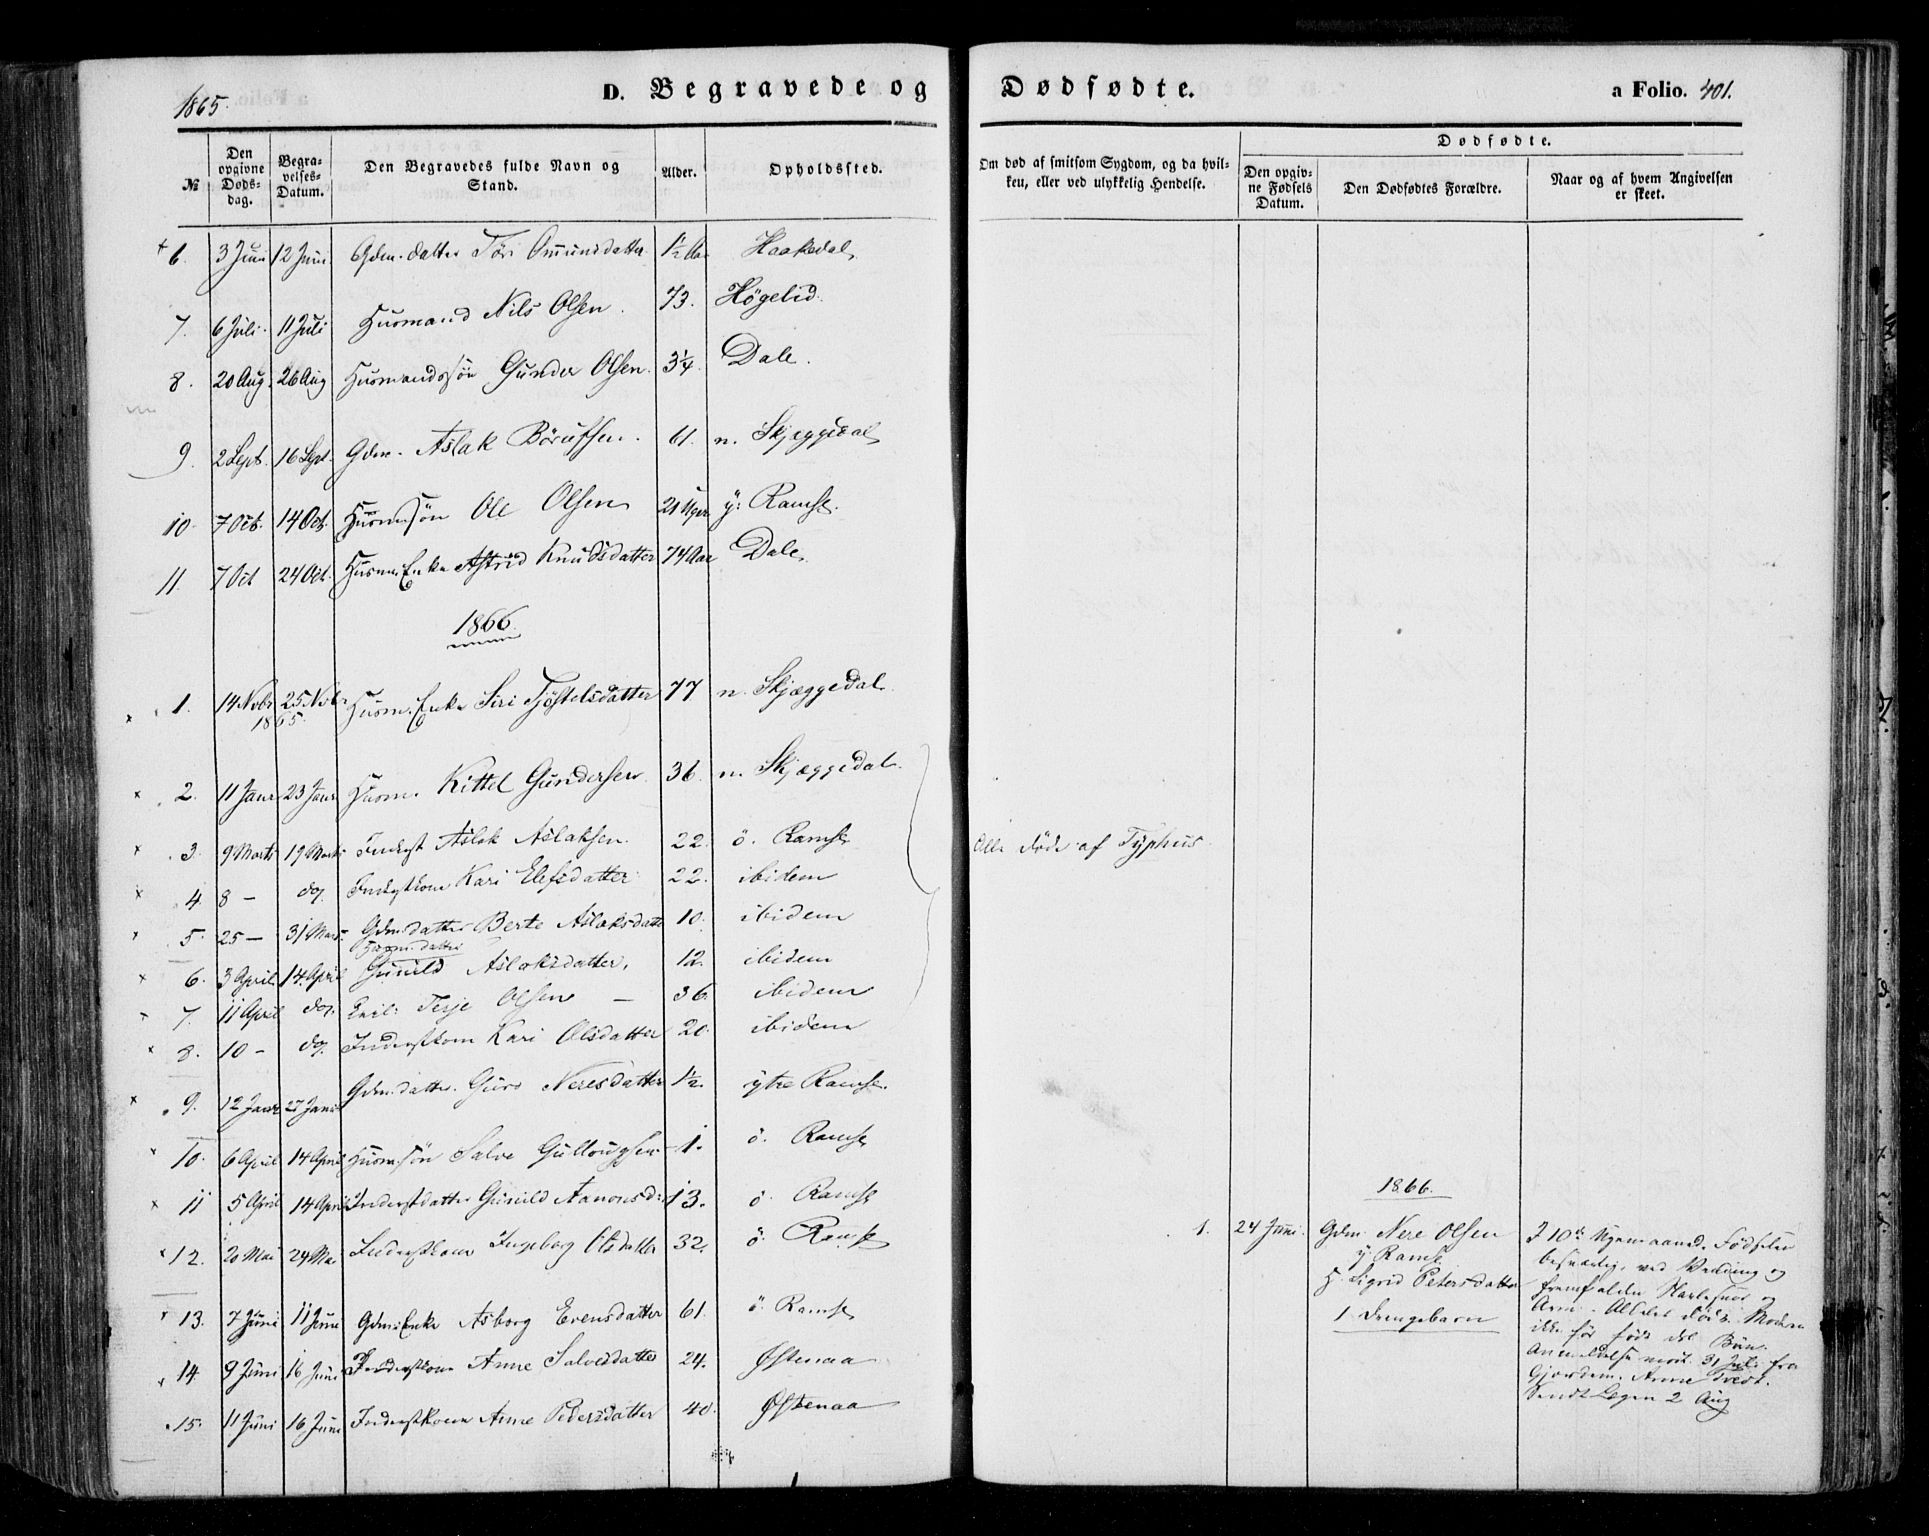 1865.
D. Begravede og Dødfødte.
a Folio. 401.
№
Den opgivne Døds-dag.
Begra-velses-Datum.
Den Begravedes fulde Navn og Stand.
Alder.
Opholdssted.
Om død af smitsom Sygdom, og da hvil-ken, eller ved ulykkelig Hendelse.
Dødfødte.
Den opgiv-ne Fødsels Datum.
Den Dødfødtes Forældre.
Naar og af hvem Angivelsen er skeet.
6. 3 Juni 12 Juni Gdm. datter Tøri Omundsdatter 1½ Aar Haakedal
7. 6 Juli 11 Juli Husmand Nils Olsen. 73. Høgelid.
8. 20 Aug. 26 Aug Husmandssøn Gunder Olsen. 3¼. Dale.
9. 2 Sept. 16 Sept. Gdm. Aslak Børufsen. 61. n. Skjeggedal
10. 7 Oct. 14 Oct. Husmsøn Ole Olsen 21 Uger y: Ramse.
11. 7 Oct 24 Oct. Husm. Enke Astrid Knudsdatter 74 Aar Dale
1866.
1. 14 Novbr 25 Novbr Husm. Enke Siri Tjøstelsdatter 77 n. Skjæggedal
1865.
2. 11 Janr 23 Janr Husm. Kittel Gundersen. 36. n. Skjæggedal.
3. 9 Marts 19 Marts Inderst Aslak Aslaksen. 22. ö. Ramse
Alle døde af Typhus.
4. 8 — do. Inderstkone Kari Elefsdatter 22. ibidem
5. 25 — 31 Marts Gdm. datter Berte Aslaksdatter 10. ibidem
Husm. datter
6. 3 April 14 April Gunild Aslaksdatter. 12. ibidem
7. 11 April do. Terje Olsen — 36. ibidem
8. 10 — do. Inderstkone Kari Olsdatter 20. ibidem
9. 12 Janr 27 Janr Gdm. datter. Guro Neresdatter 1½. ytre Ramse.
10. 6 April 14 April Husmsøn Salve Gullougsen 1. ö. Ramse
11 5 April 14 April Inderstdatter Gunild Aanonsd: 13. ö. Ramse
12. 20 Mai 24 Mai Inderstkone Ingeborg Olsdatter 32. ö. Ramse
13. 7 Juni 11 Juni Gdms Enke Asborg Evensdatter 61. ö. Ramse
14 9 Juni 16 Juni Inderstkone Anne Salvesdatter 24. Østenaa
15. 11 Juni 16 Juni Inderstkone Anne Pedersdatter 40. Østenaa
1866.
1. 24 Juni. Gdm Nere Olsen
y Ramse
H. Sigrid Petersdatter
1 Drengebarn
I 10de Fødselen
besværlig, ved Vending og
fremfalden Navlesnor og
Arm.
ikke før født
Anmeldelse modt. 31 Juli fra
Gjordem. Anne Tveit.
Sendt Lægen 2 Aug